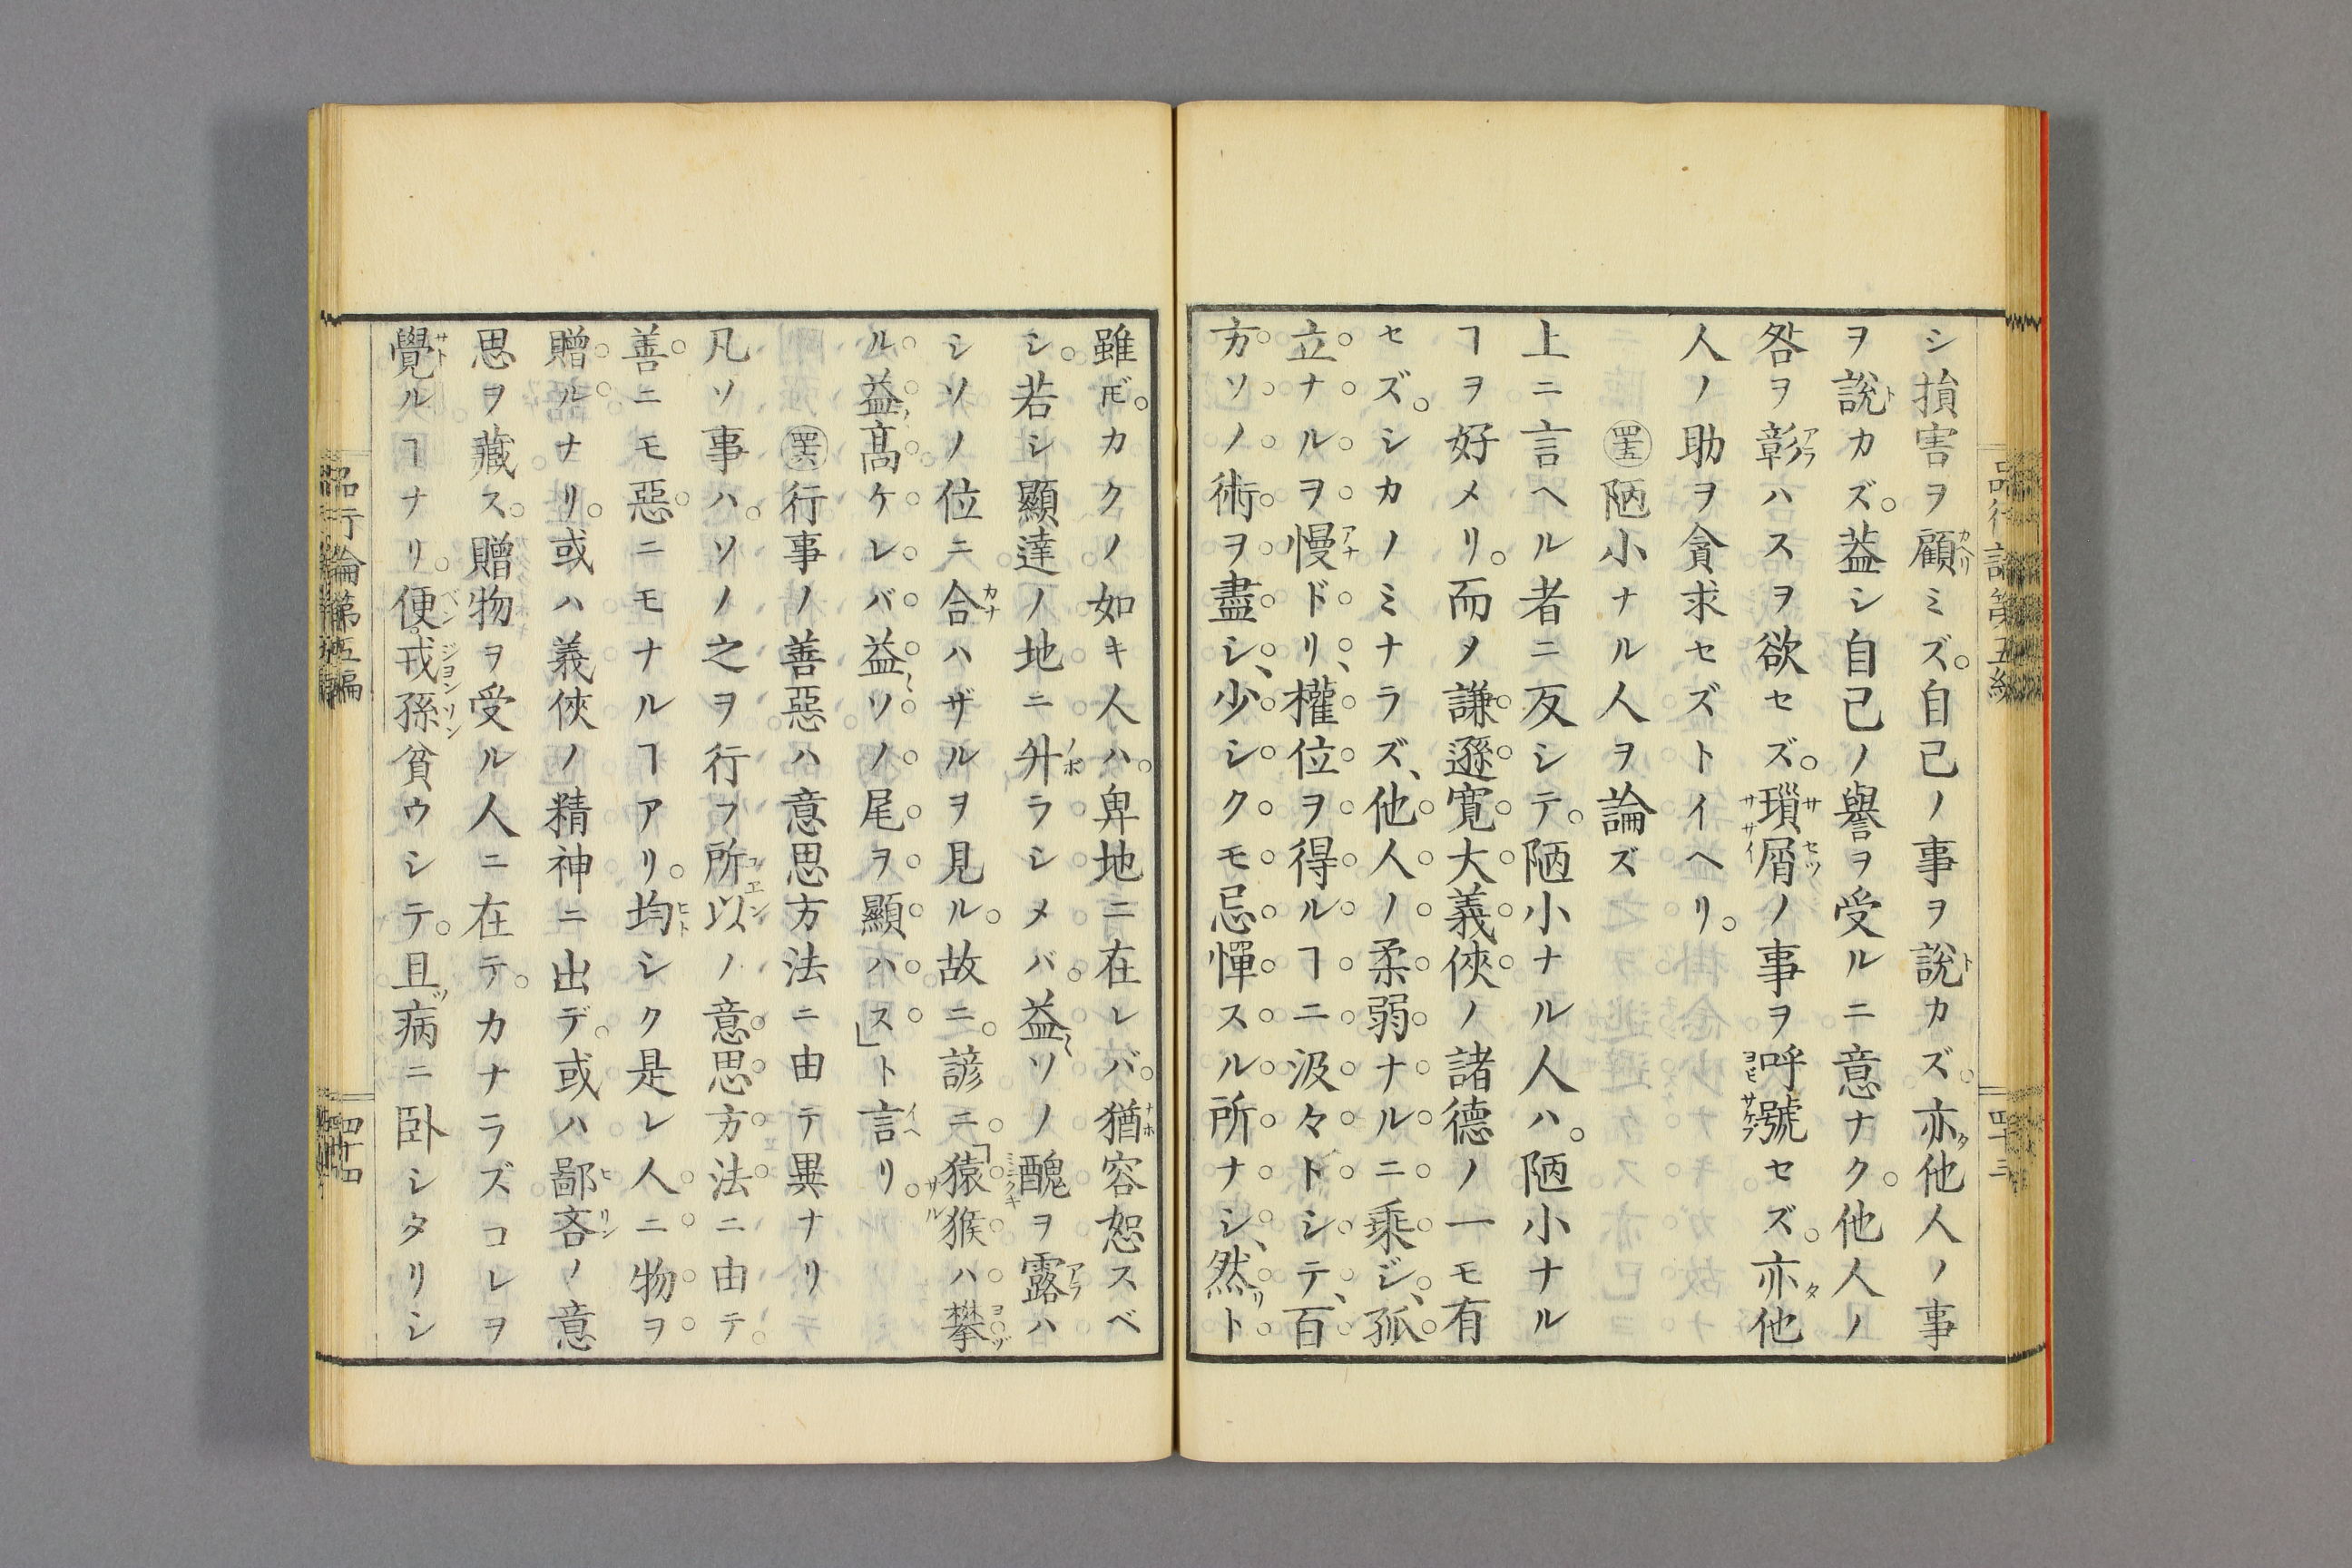 シ損害ヲ顧ミズ。自己ノ事ヲ說カズ。亦他人ノ事
ヲ說カズ。蓋シ自己ノ譽ヲ受ルニ意ナク。他人ノ
咎ヲ彰ハスヲ欲セズ。瑣屑ノ事ヲ呼號セズ。亦他
人ノ助ヲ貪求セズトイヘリ。
㊺陋小ナル人ヲ論ズ
上ニ言ヘル者ニ反シテ。陋小ナル人ハ。陋小ナル
ヿヲ好メリ。而メ謙遜寬大義俠ノ諸德ノ一モ有
セズ。シカノミナラズ、他人ノ柔弱ナルニ乘ジ、孤
立ナルヲ慢ドリ、權位ヲ得ルヿニ汲々トシテ、百
方ソノ術ヲ盡シ、少シクモ忌憚スル所ナシ、然ト
雖𪜈。カクノ如キ人ハ。卑地ニ在レバ。猶容恕スベ
シ。若シ顯達ノ地ニ升ラシメバ。益〻ソノ醜ヲ露ハ
シソノ位ニ合ハザルヲ見ル。故ニ。諺ニ「猿猴ハ攀
ル益〻高ケレバ益〻ソノ尾ヲ顯ハス」ト言リ。
㊻行事ノ善惡ハ意思方法ニ由テ異ナリ
凡ソ事ハ。ソノ之ヲ行フ所以ノ意思方法ニ由テ。
善ニモ惡ニモナルヿアリ。均シク是レ人ニ物ヲ
贈ルナリ。或ハ義俠ノ精神ニ出デ。或ハ鄙吝ノ意
思ヲ藏ス。贈物ヲ受ル人ニ在テ。カナラズコレヲ
覺ルヿナリ。便戎孫貧ウシテ。且病ニ臥シタリシ
品行論第五編
四十三
品行論第五編
四十四